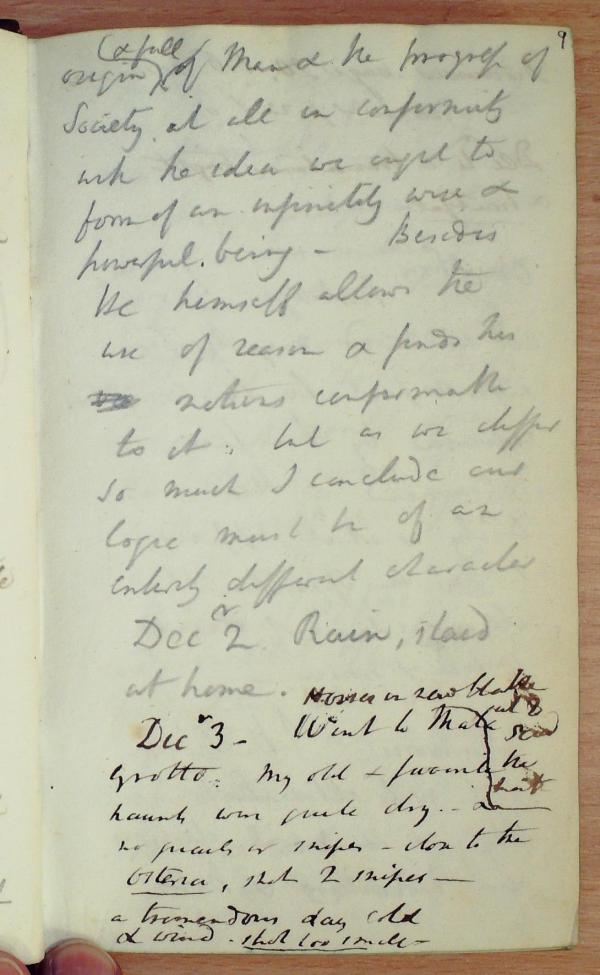 9
(& fall)
origin of Man & the progress of
Society at all in conformity
with the idea we ought to
form of an infinitely wise &
powerful being - Besides
He himself allows the
use of reason & finds his
notions conformable
to it; but as we differ
so much I conclude our
logic must be of an
entirely different character
Decr 2 Rain, staid
at home.
Decr 3 - Went to
grotto. My old & favourite
haunts were quite dry. -
no quails or snipes - close to the
Osteria, shot 2 snipes -
a tremendous day cold
& wind - shot too small -